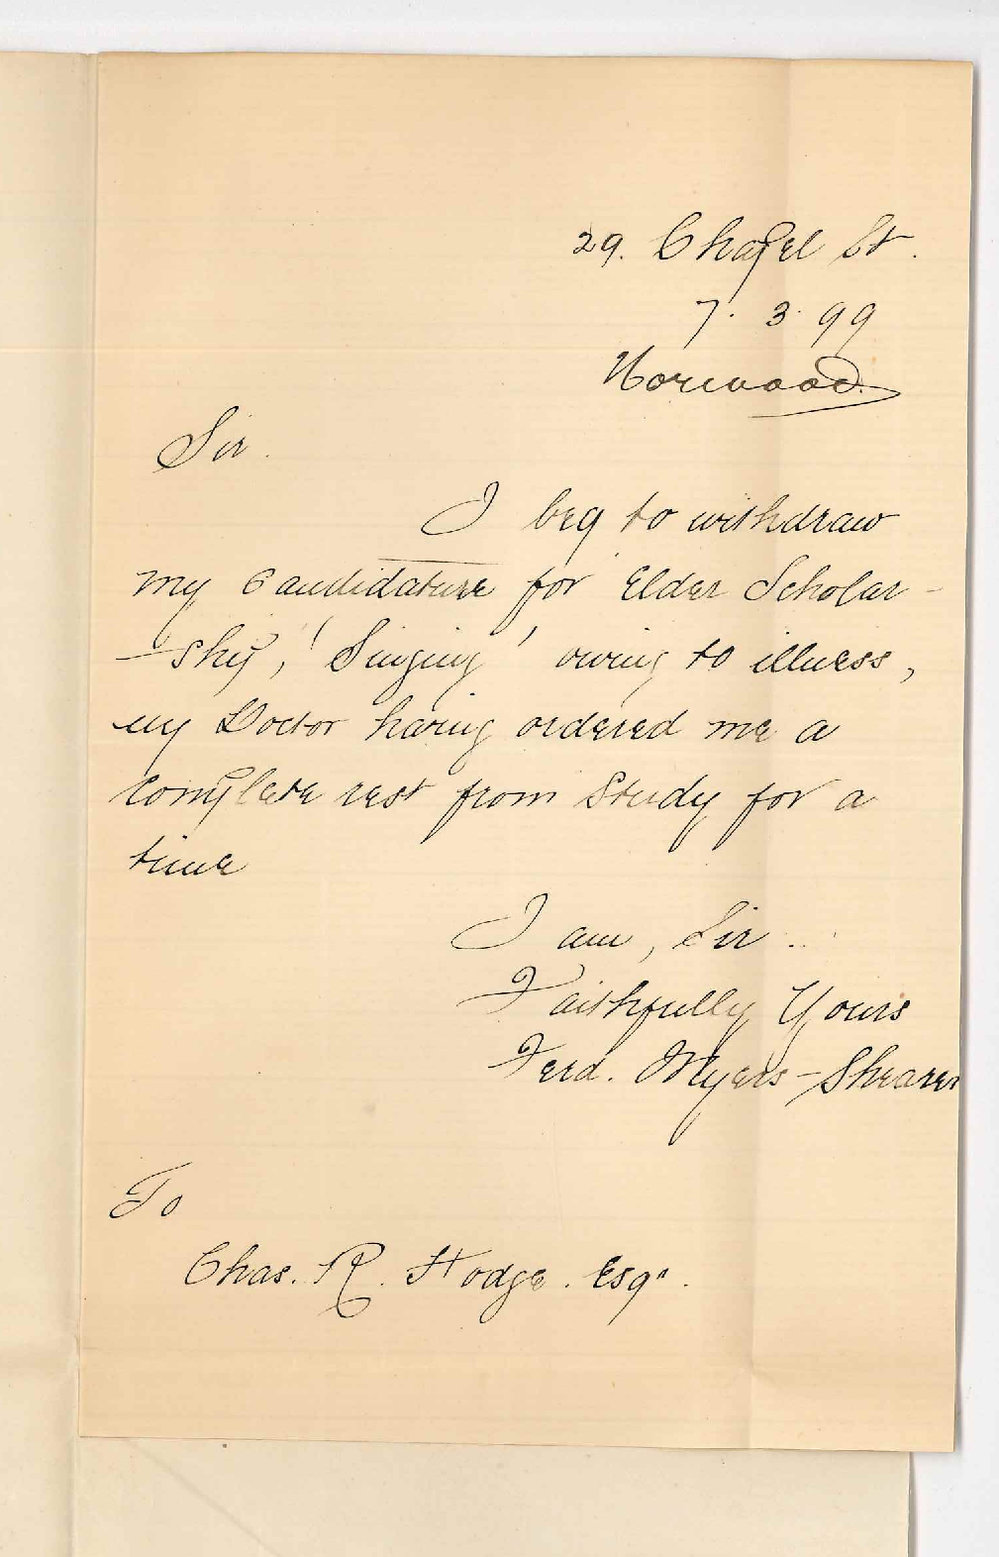 29. Chapel St.
7. 3. 99
Norwood.
Sir.
I beg to withdraw
my Candidature for Elder Scholar-
-ship, 'Singing' owing to illness,
my Doctor having ordered me a
complete rest from Study for a
time
I am, Sir..
Faithfully Yours
Ferd. Myers-Shearer
To
Chas. R. Hodge. Esqr.